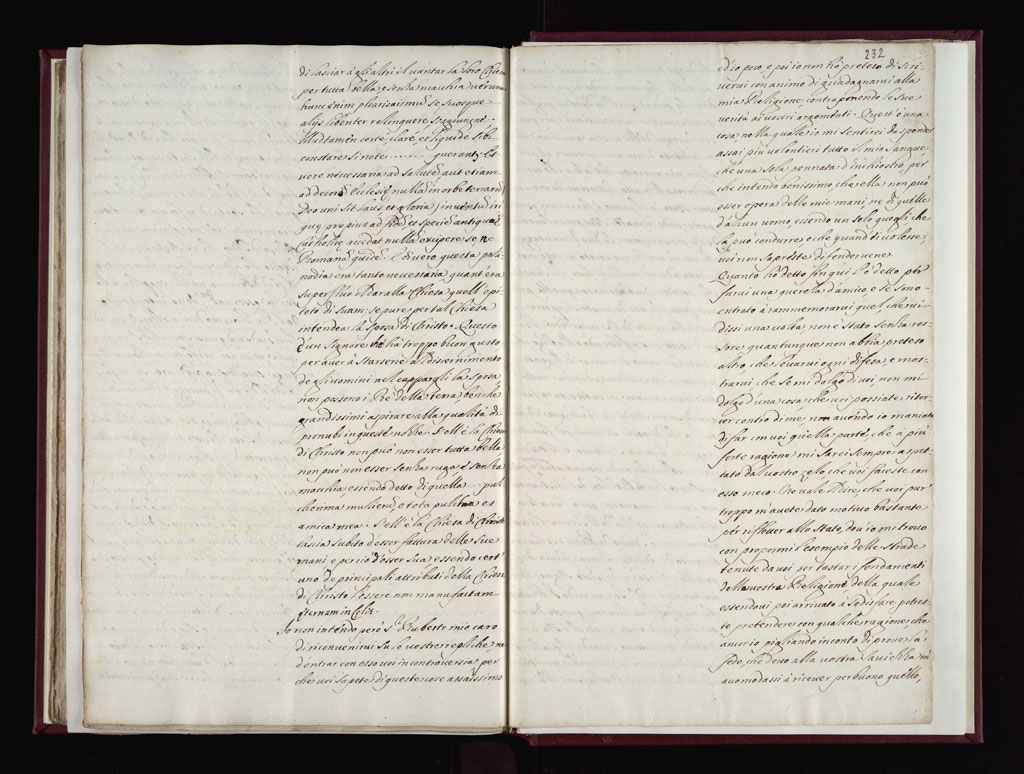 di lasciar à gli altri il vantar la loro Chiesa
per tutta bella e senza macchia verum
hunc enim pharisaismum se suosque
alijs libenter relinquere
Illud tamen certè, clarè, et liquidè sibi
constare si notæ ...... quærantur Et
vere necessariæ ad salutem aut etiam
ad decorem Ecclesiæ nullam in orbe terrarum
Deo uni sit laus et gloria) inventum iri
quæ propius ad fidem et speciem antiquæ
Catholicæ accedat nullam excipere se ne
Romanam quidem. E di vero questa pali-
nodia era tanto necessaria quant'era
superfluo il dar alla Chiesa quell'epi-
teto di suam; se pure per tal Chiesa
intendea la sposa di Christo. Questo
è un signore ha troppo buon gusto
per aver à starsene al discernimento
degli uomini nel cappargli la sposa
non possono i Rè della terra benche
grandissimi aspirare alla qualità di
pronubi in queste nozze. S'ell'è la Chiesa
di Christo non può non esser tutta bella
non può non esser senza ruga e senza
macchia, essendo detto di quella pul-
cherrima mulierum, e tota pulchra es
amica mea. S'ell'è la Chiesa di Christo
lascia subito d'esser fattura delle sue
mani e perciò d'esser sua essendo cert'
uno de principali attributi della Chiesa
di Christo l'essere non manu factam
æternam in Cœlis.
Io non intendo però Sr. Ruberto mio caro
di riconvenirvi su le vostre repliche ne
d'entrar con esso voi in controversia per
che voi sapete di queste cose assaissimo
232
ed io poco, e poi io non hò preteso di scri-
vervi con animo di guadagnarvi alla
mia Religione contraponendo le sue
verità à i vostri argomenti. Quest'è una
cosa nella quale io mi sentirei da spender
assai più volontieri tutto il mio sangue
che una sola pennata d'inchiostro, per
che intendo benissimo che ella non può
esser opera delle mie mani, ne di quelle
d'alcun uomo, essendo un solo quegli che
la può condurre, e che quand'ei volesse
voi non sapreste difendervene.
Quanto hò detto fin qui l'hò detto per
farvi una querela d'amico e se sono
entrato à rammemorarvi quel che vi
dissi una volta, non è stato senza ros-
sore, quantunque non abbia preteso
altro che levarvi ogni difesa, e mos-
trarvi che se mi dolgo di voi non mi
dolgo d'una cosa che voi possiate ritor-
cer contro di me non avendo io mancato
di far con voi quella parte, che à più
forte ragione mi sarei sempre aspet-
tato dal vostro zelo che voi faceste con
esso meco. Ne vale il dire, che voi pur
troppo m'avete dato motivo bastante
per rifletter allo stato, dov'io mi trovo
con propormi l'esempio delle strade
tenute da voi per tastar i fondamenti
della vostra Religione della quale
essendovi poi arrivato à sodisfare potres-
te pretendere con qualche ragione, che
anch'io pigliando in conto di prove la
fede, che devo alla vostra saviezza m'
accomodassi à ricever per buono quello,